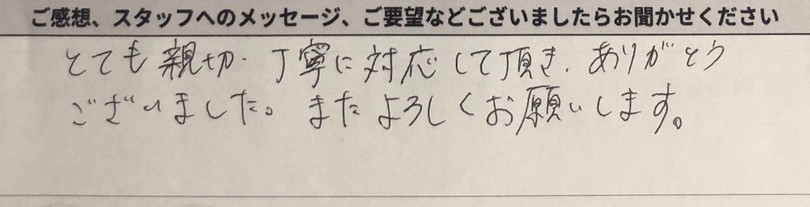 ご感想、スタッフへのメッセージ、ご要望などございましたらお聞かせください
とても親切・丁寧に対応して頂き、ありがとう
ございました。またよろしくお願いします。